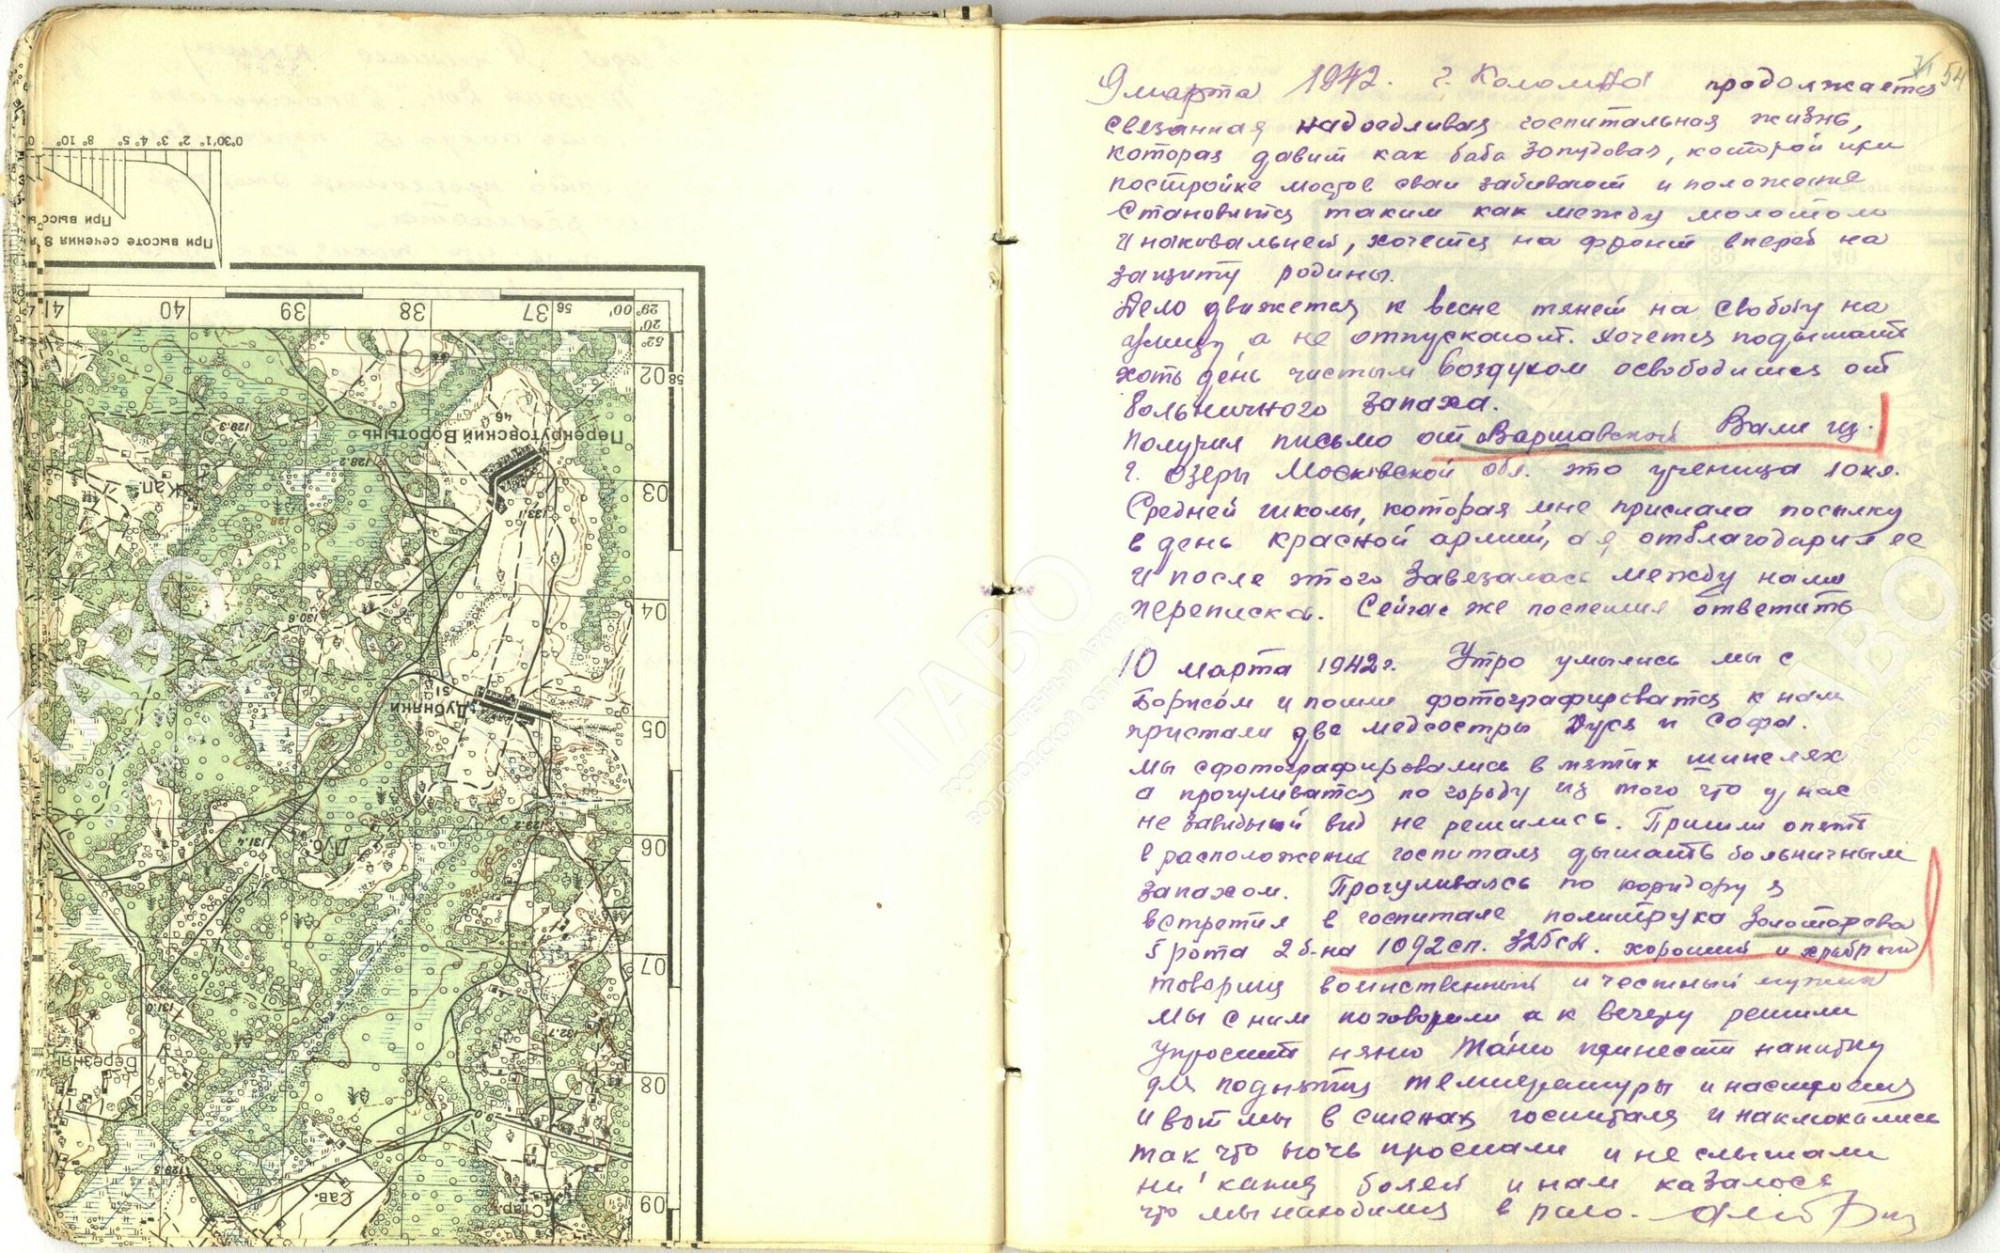 0°30' 1° 2° 3° 4° 5° 8° 10°
При высоте сечения 8
При высоте
41 40 39 38 37
29° 00'
52° 20'
58 02
03
04
05
06
07
08
09
Перекрутовский Воротынь
46.4
133.1
129.3
128.2
Кап.
128
130.6
Дубняки
51
129.2
131.4
Дуб.
128
131.0
132.7
Березняк
129.5
Сав.
Стар.
54
9 марта 1942. г. Коломна продолжается
связанная надоедливая госпитальная жизнь,
которая давит как баба запудовая, которой при
постройке мостов сваи забивают и положение
становится таким как между молотом
и наковальней, хочется на фронт вперед на
защиту родины.
Дело движется к весне тянет на свободу на
улицу, а не отпускают. Хочется подышать
хоть день чистым воздухом освободится от
больничного запаха.
Получил письмо от Варшавской Вали из
г. Озеры Московской обл. это ученица 10 кл.
Средней школы, которая мне прислала посылку
в день красной армии, а я отблагодарил ее
и после этого завезалась между нами
переписка. Сейчас же поспешил ответить
10 марта 1942 г. Утро умылись мы с
Борисом и пошли фотографироватся к нам
пристали две медсестры Дуся и Софа.
мы сфотографировались в мятых шинелях
а прогуливатся по городу из того что у нас
не завидный вид не решились. Пришли опять
в расположение госпиталя дышать больничным
запахом. Прогуливаясь по коридору я
встретил в госпитале политрука Золоторева
5 рота 2 б-на 1092 сп. 325 сд. хороший и храбрый
товарищ воинственный и честный мужик
мы с ним поговорили а к вечеру решили
упросить няню Таню принести напитку
для поднятия температуры и настроения
и вот мы в стенах госпиталя и наклюкались
так что ночь проспали и не слышали
ни каких болей и нам казалось
что мы находимся в раю.
ГАВО
ГОСУДАРСТВЕННЫЙ АРХИВ
ВОЛОГОДСКОЙ ОБЛАСТИ